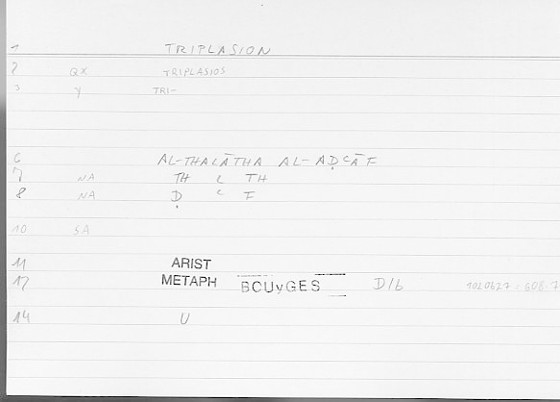 1 TRIPLASION
2 QX TRIPLASIOS
3 Y TRI-
6 AL-THALĀTHA AL-AḌʿĀF
7 NA TH L TH
8 NA Ḍ ʿ F
10 SA
11 ARIST
12 METAPH BOUyGES D/b
14 U